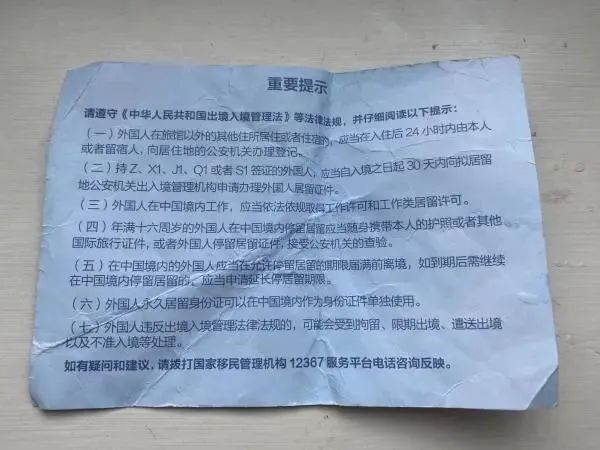 重要提示
请遵守《中华人民共和国出境入境管理法》等法律法规，并仔细阅读以下提示：
（一）外国人在旅馆以外的其他住所居住或者住宿的，应当在入住后24小时内由本人
或者留宿人，向居住地的公安机关办理登记。
（二）持Z、X1、J1、Q1或者S1签证的外国人，应当自入境之日起30天内向拟居留
地公安机关出入境管理机构申请办理外国人居留证件。
（三）外国人在中国境内工作，应当依法依规取得工作许可和工作类居留许可。
（四）年满十六周岁的外国人在中国境内停留居留应当随身携带本人的护照或者其他
国际旅行证件，或者外国人停留居留证件，接受公安机关的查验。
（五）在中国境内的外国人应当在允许停留居留的期限届满前离境，如到期后需继续
在中国境内停留居留的、应当申请延长停居留期限。
（六）外国人永久居留身份证可以在中国境内作为身份证件单独使用。
（七）外国人违反出境入境管理法律法规的，可能会受到拘留、限期出境、遣送出境
以及不准入境等处理。
如有疑问和建议，请拨打国家移民管理机构12367服务平台电话咨询反映。